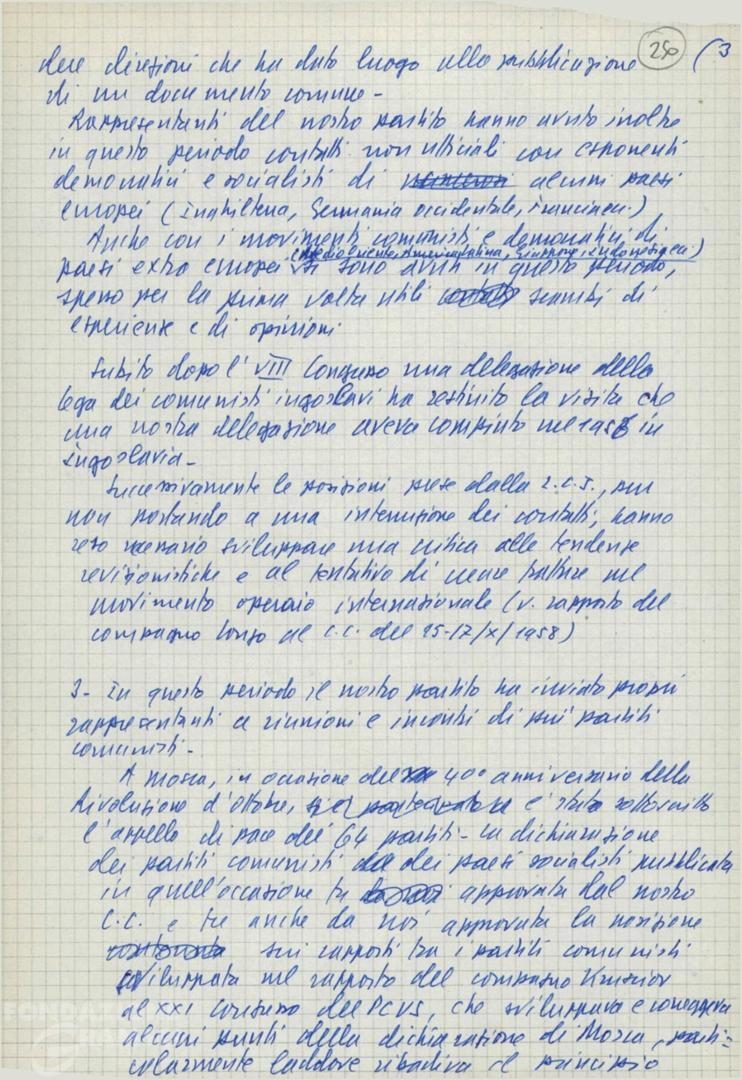 250 (3
dere direzioni che ha dato luogo alla pubblicazione
di un documento comune -
Rappresentanti del nostro partito hanno avuto inoltre
in questo periodo contatti non ufficiali con esponenti
democratici e socialisti di alcuni paesi
europei (Inghilterra, Germania occidentale, Francia ecc.)
Anche con i movimenti comunisti e democratici di
(Medio Oriente, America latina, Giappone, Indonesia ecc.)
paesi extra europei si sono avuti in questo periodo,
spesso per la prima volta utili scambi di
esperienze e di opinioni
Subito dopo l'VIII Congresso una delegazione della
Lega dei comunisti jugoslavi ha restituito la visita che
una nostra delegazione aveva compiuto nel 1956 in
Jugoslavia -
Successivamente le posizioni prese dalla L.C.J., pur
non portando a una interruzione dei contatti, hanno
reso necessario sviluppare una critica alle tendenze
revisionistiche e al tentativo di creare fratture nel
movimento operaio internazionale (v. rapporto del
compagno Longo al C.C. del 15-17/X/1958)
3 - In questo periodo il nostro partito ha inviato propri
rappresentanti a riunioni e incontri di più partiti
comunisti -
A Mosca, in occasione del 40° anniversario della
Rivoluzione d'ottobre, è stato sottoscritto
l'appello di pace dei 64 partiti - La dichiarazione
dei partiti comunisti dei paesi socialisti pubblicata
in quell'occasione fu approvata dal nostro
C.C. e fu anche da noi approvata la posizione
sui rapporti tra i partiti comunisti
sviluppata nel rapporto del compagno Krusciov
al XXI congresso del PCUS, che sviluppava e correggeva
alcuni punti della dichiarazione di Mosca, parti-
colarmente laddove ribadiva il principio